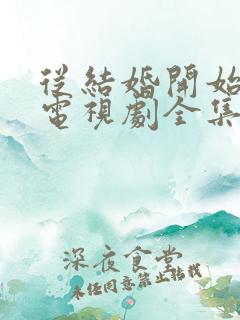 從結婚開始
電視劇全集
深夜食堂
未任同意禁止转載